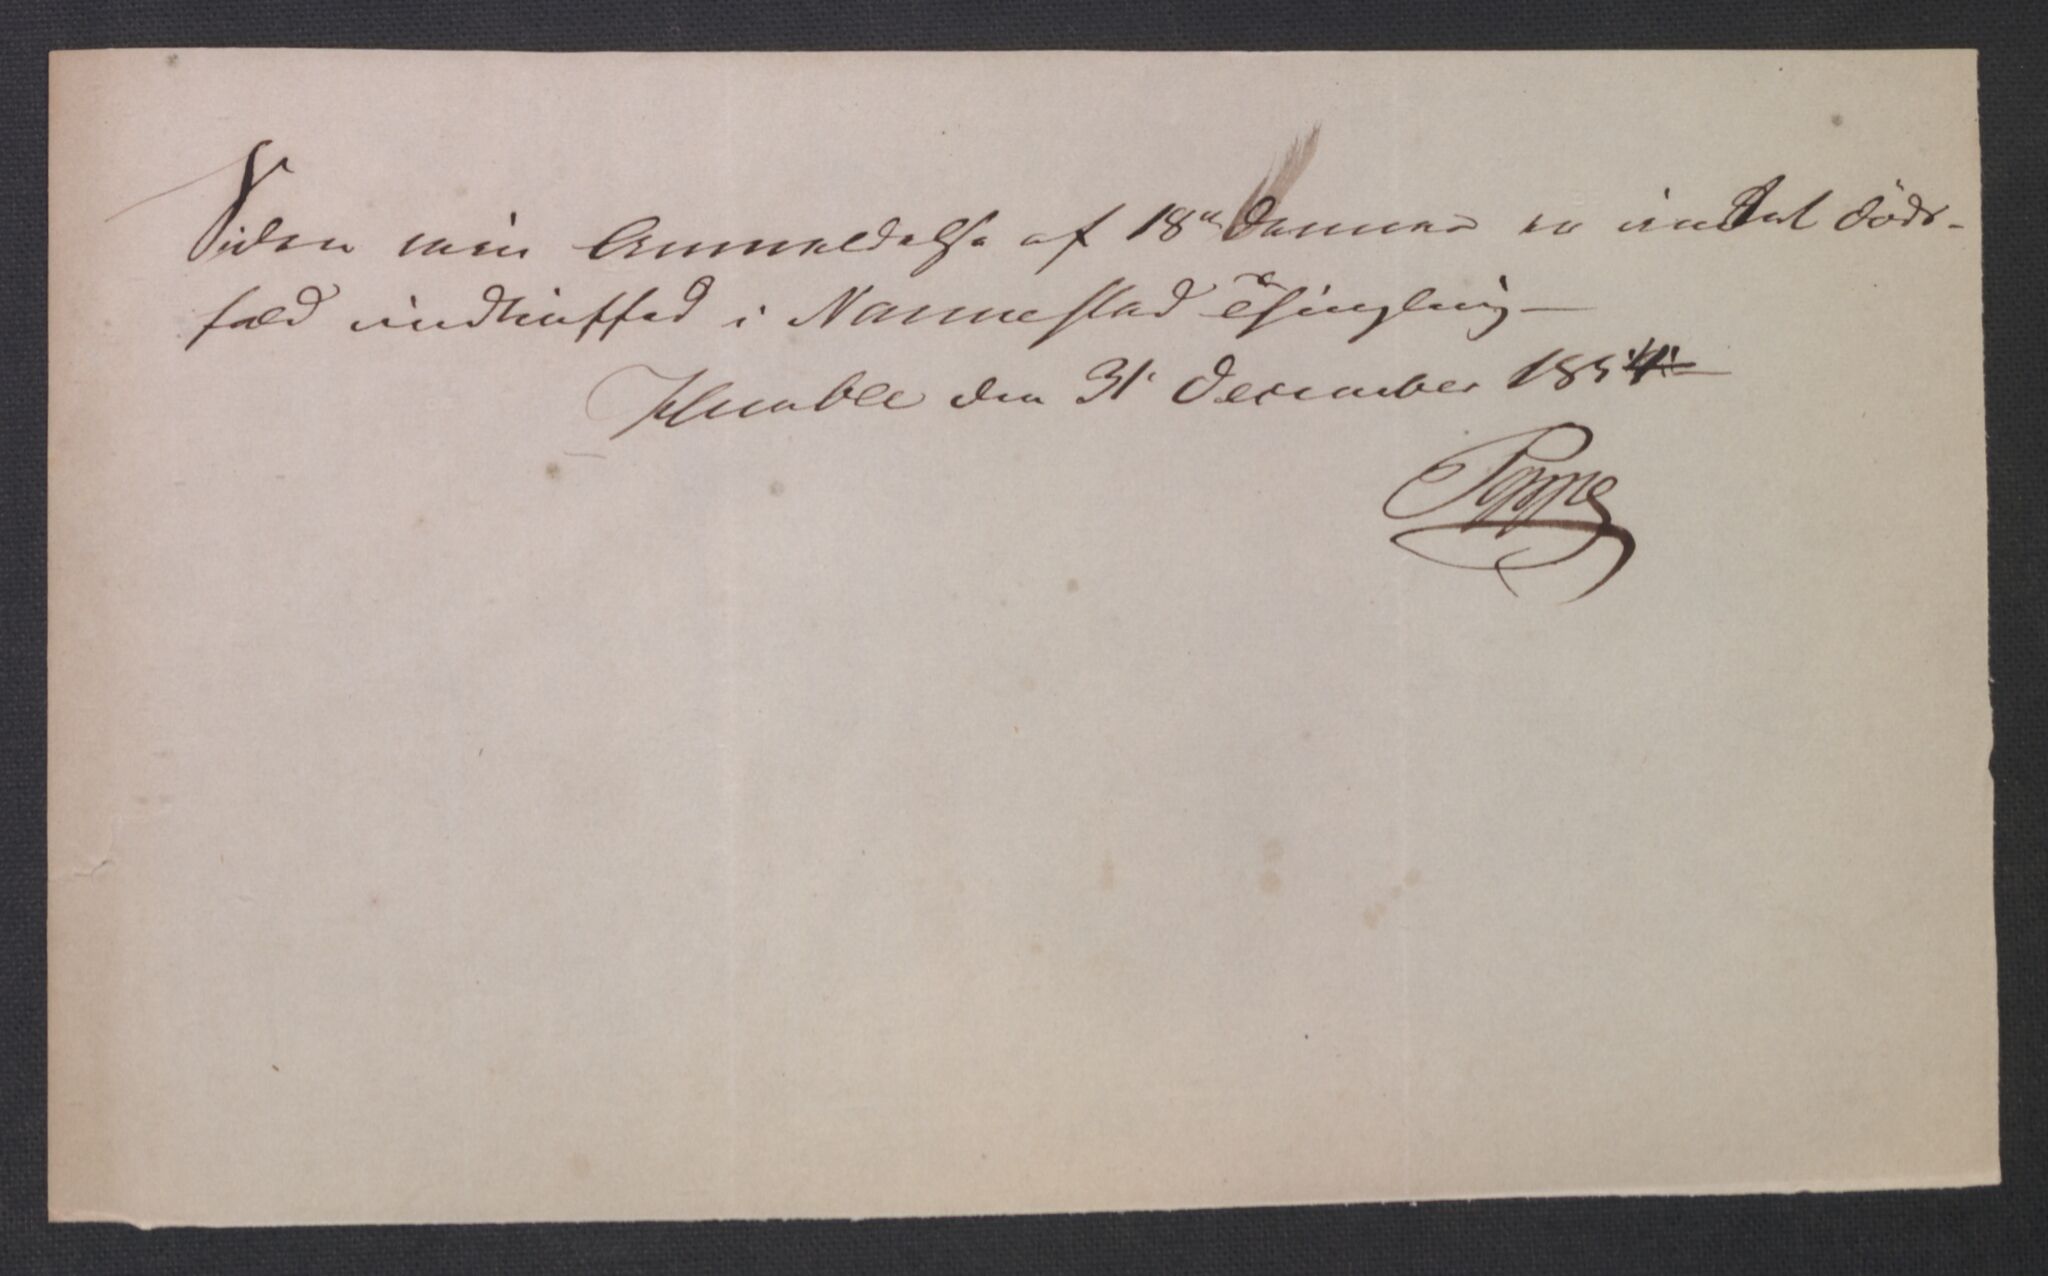 Siden min Anmeldelse af 18de dennes er intet Døds-
fald indtruffed i Nannestad Thinglaug
Humble den 31 December 1854
Poppe